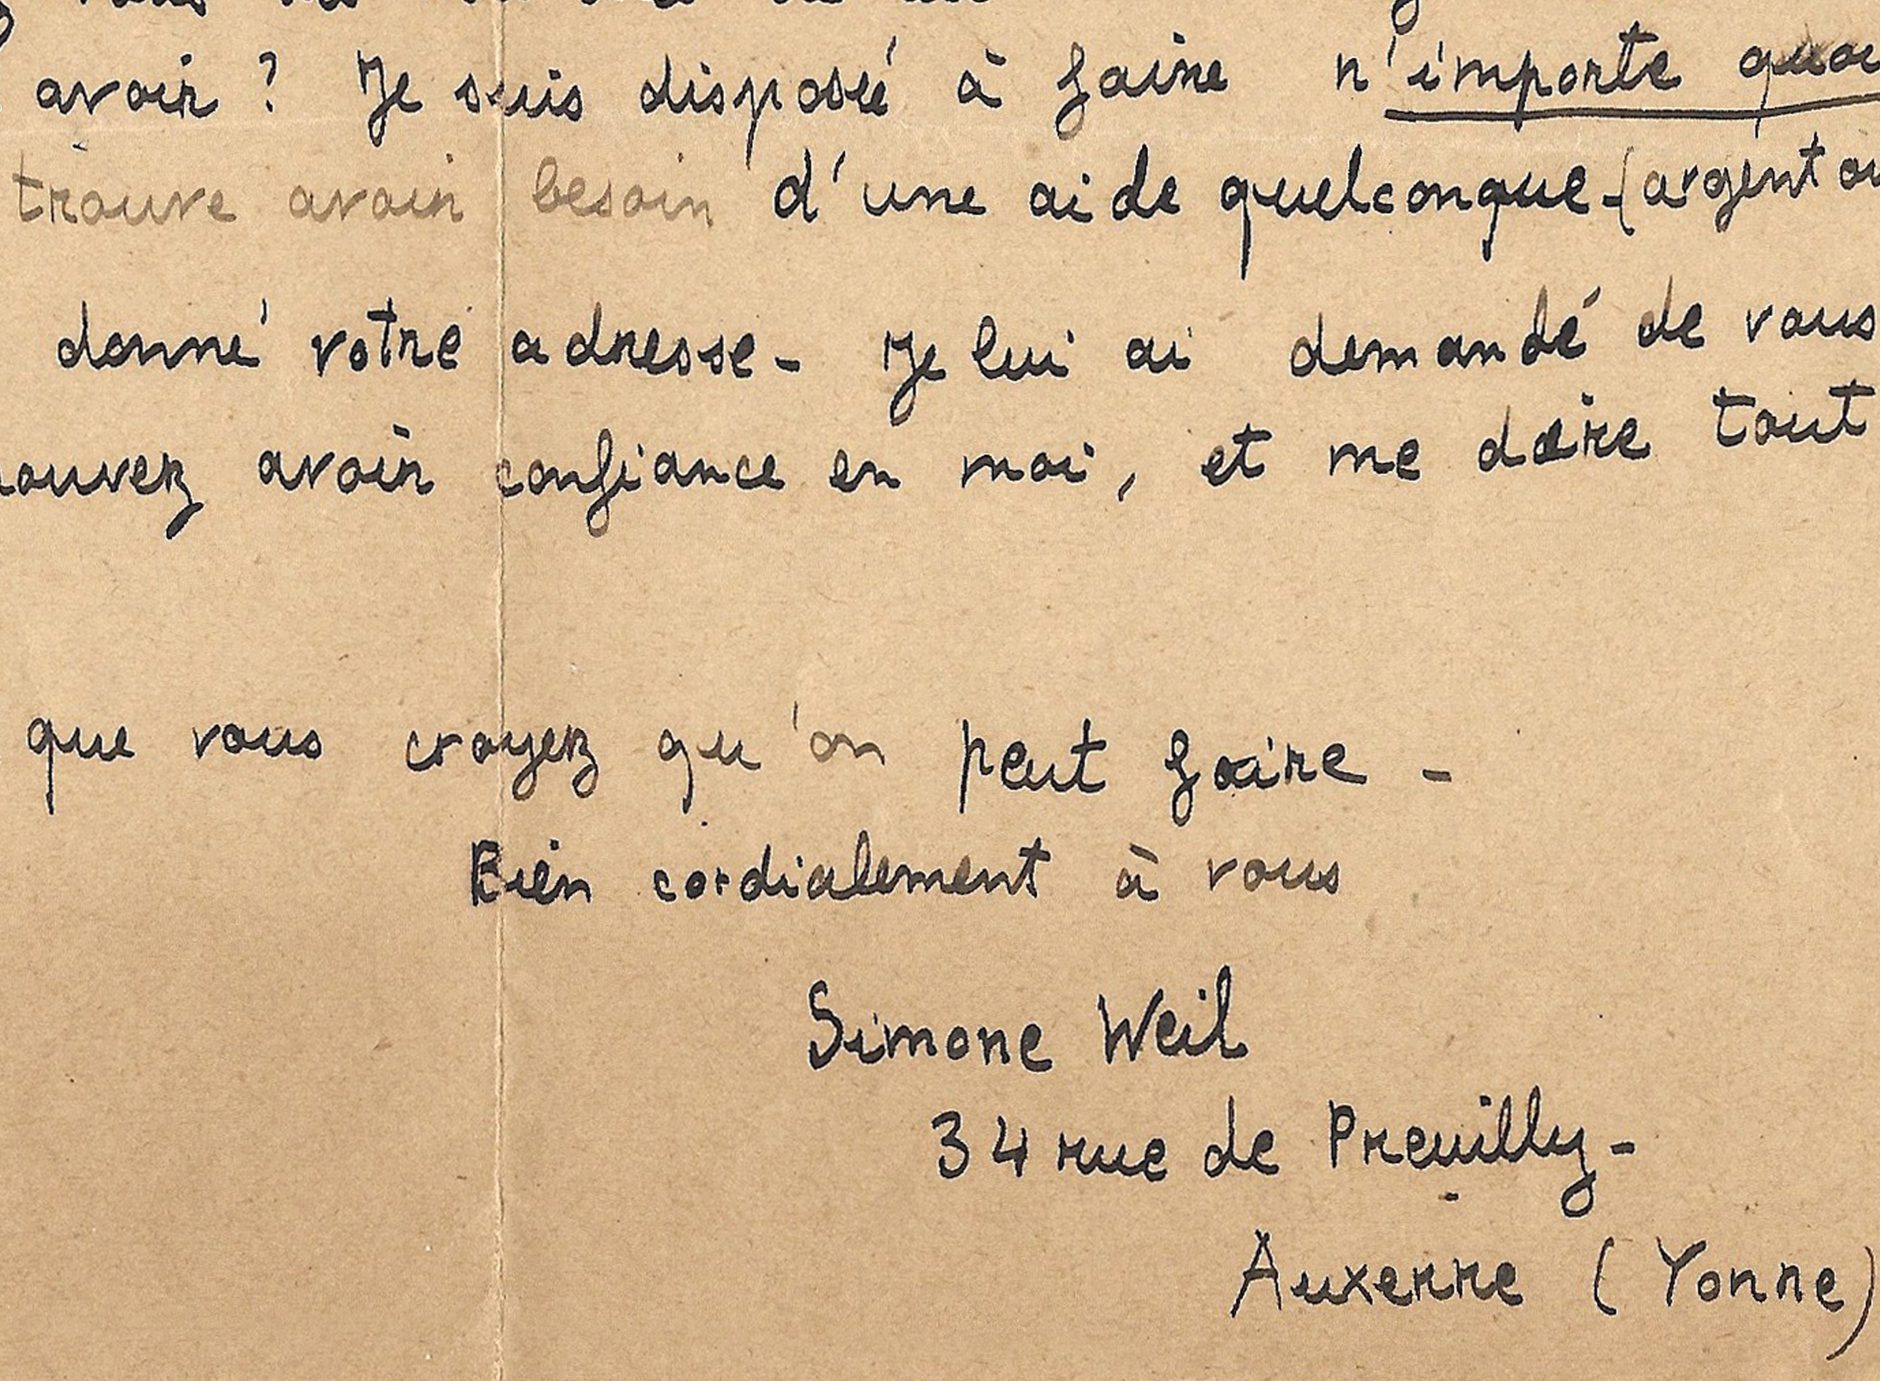 avoir ? Je suis disposée à faire n'importe quoi
trouve avoir besoin d'une aide quelconque - (argent ou
donné votre adresse - Je lui ai demandé de vous
pouvez avoir confiance en moi, et me dire tout
que vous croyez qu'on peut faire -
Bien cordialement à vous
Simone Weil
34 rue de Preuilly -
Auxerre (Yonne)